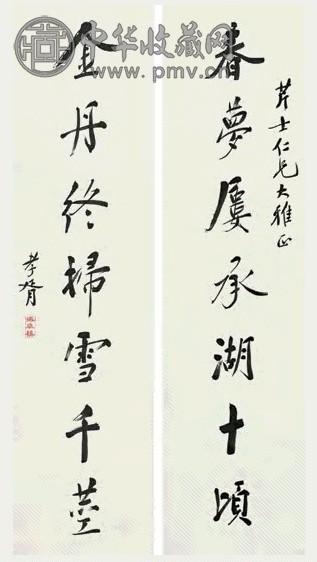 中华收藏网
www.pmv.cn
芹士仁兄大雅正
春夢屢承湖十頃
金丹終掃雪千莖
孝胥